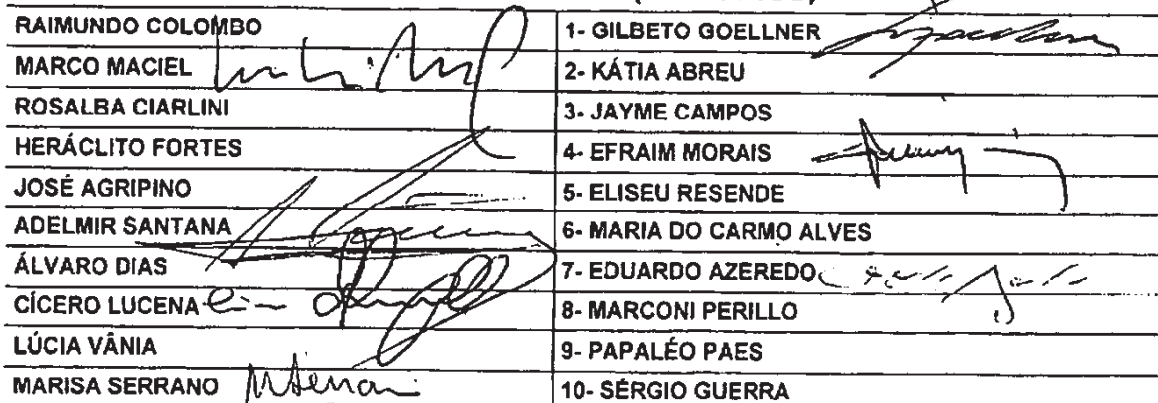 RAIMUNDO COLOMBO 1- GILBETO GOELLNER
MARCO MACIEL 2- KÁTIA ABREU
ROSALBA CIARLINI 3- JAYME CAMPOS
HERÁCLITO FORTES 4- EFRAIM MORAIS
JOSÉ AGRIPINO 5- ELISEU RESENDE
ADELMIR SANTANA 6- MARIA DO CARMO ALVES
ÁLVARO DIAS 7- EDUARDO AZEREDO
CÍCERO LUCENA 8- MARCONI PERILLO
LÚCIA VÂNIA 9- PAPALÉO PAES
MARISA SERRANO 10- SÉRGIO GUERRA